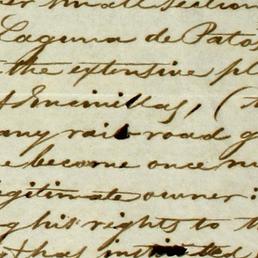 er small section
Laguna de Patos
the extensive pl
f Encinillas, (
any rail-road g
e become once m
gitimate owner:
g his rights to th
that